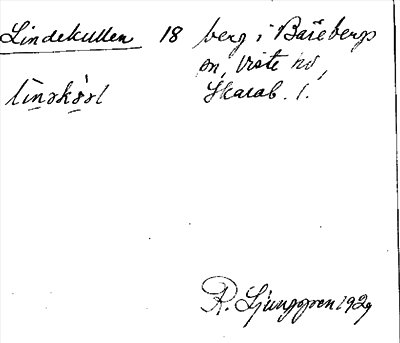 Lindekullen 18 berg i Barebergs
sn, Viste hd,
Skarab. l.
R. Ljunggren 1929